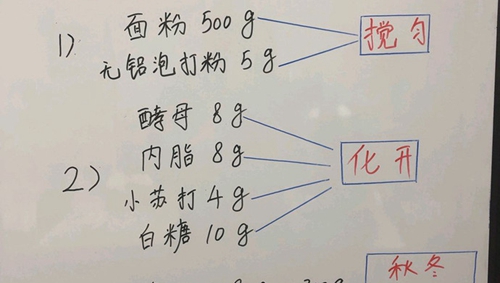 1) 面粉 500g
无铝泡打粉 5g
搅匀
2) 酵母 8g
内脂 8g
小苏打 4g
白糖 10g
化开
秋冬